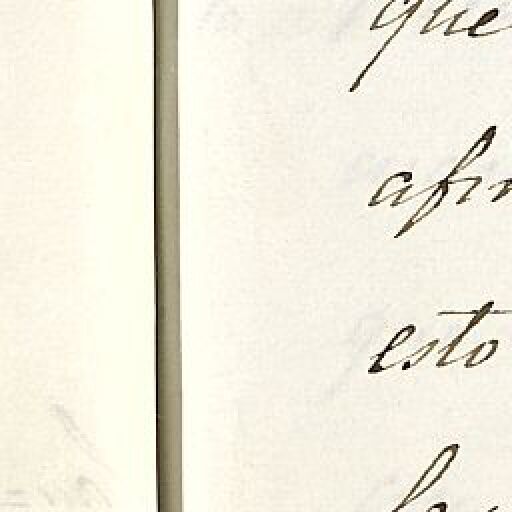 que
afir
esto